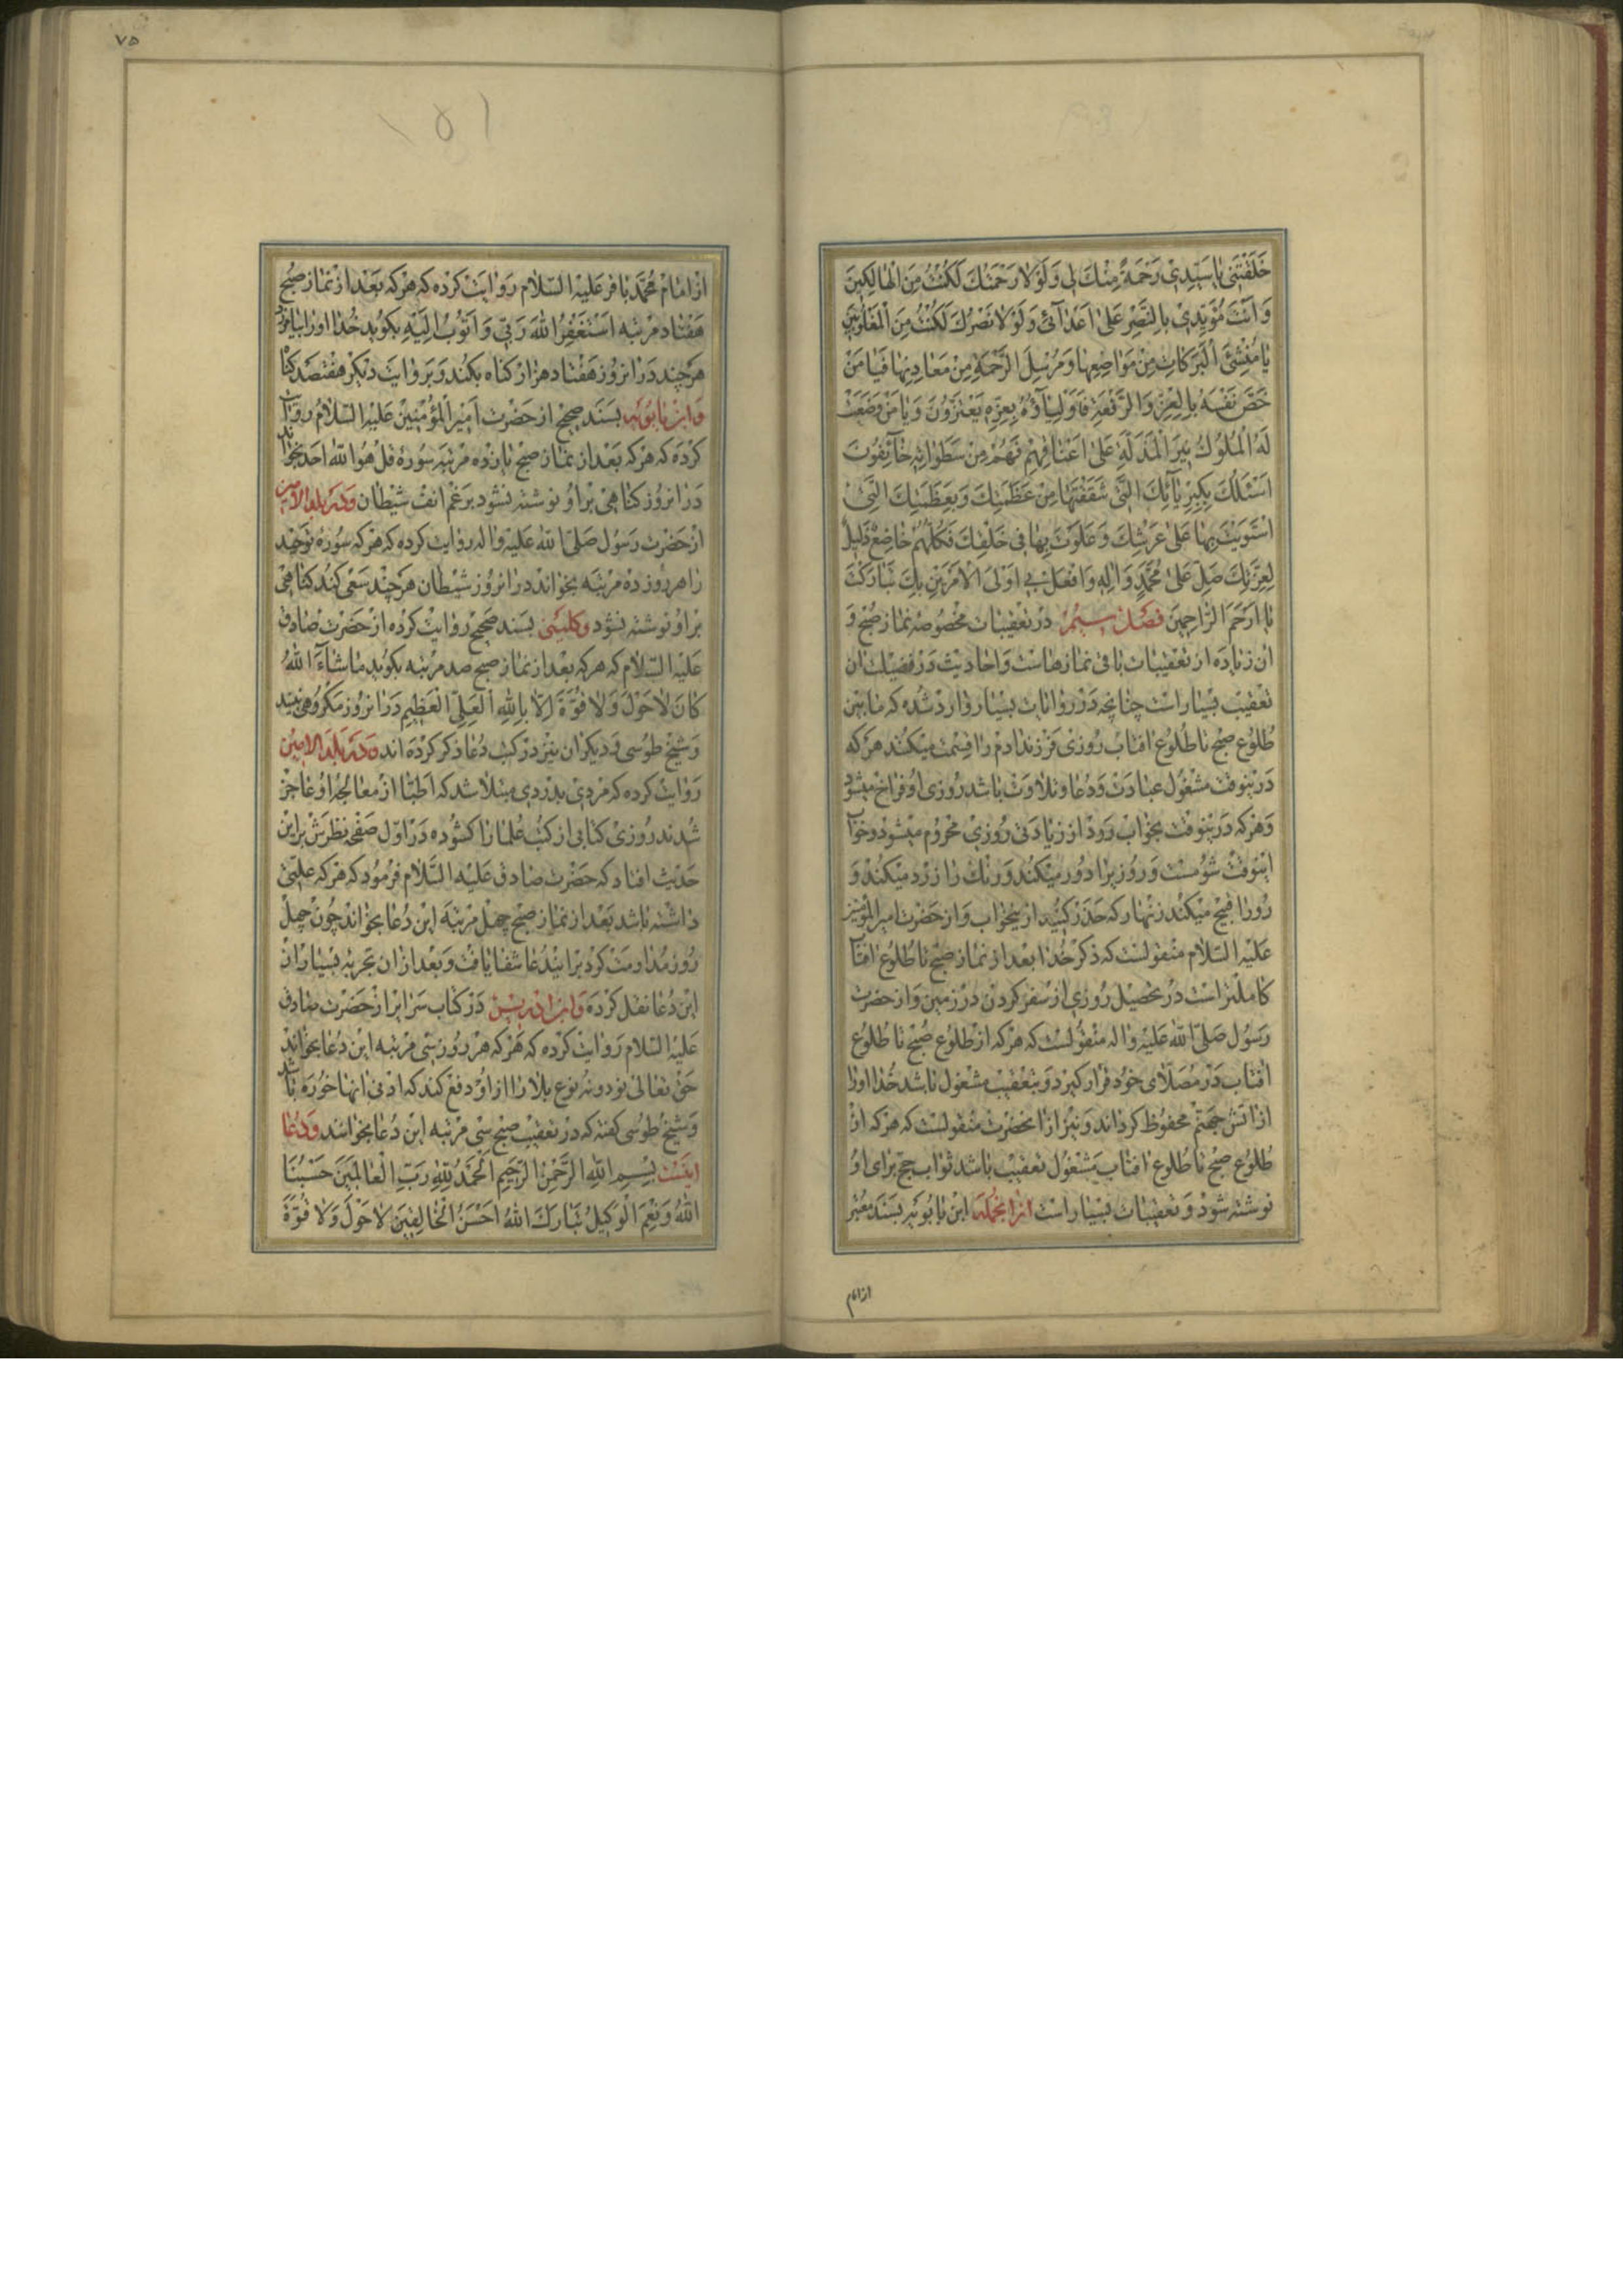 خَلَقْتَنِی یَا سَیِّدِی رَحْمَةً مِنْكَ لِی وَلَوْلَا رَحْمَتُكَ لَكُنْتُ مِنَ الْهَالِكِینَ
وَاَنْتَ مُؤَیِّدِی بِالنَّصْرِ عَلَی اَعْدَآئِی وَلَوْلَا نَصْرُكَ لَكُنْتُ مِنَ الْمَغْلُوبِینَ
یَا مُنْشِئَ الْبَرَكَاتِ مِنْ مَوَاضِعِهَا وَمُرْسِلَ الرَّحْمَةِ مِنْ مَعَادِنِهَا فَیَا مَنْ
خَصَّ نَفْسَهُ بِالْعِزِّ وَالرِّفْعَةِ فَاَوْلِیَآؤُهُ بِعِزِّهِ یَعْتَزُّونَ وَیَا مَنْ وَضَعَتْ
لَهُ الْمُلُوكُ نِیرَ الْمَذَلَّةِ عَلَی اَعْنَاقِهِمْ فَهُمْ مِنْ سَطَوَاتِهِ خَآئِفُونَ
اَسْئَلُكَ بِكِبْرِیَآئِكَ الَّتِی شَقَقْتَهَا مِنْ عَظَمَتِكَ وَبِعَظَمَتِكَ الَّتِی
اسْتَوَیْتَ بِهَا عَلَی عَرْشِكَ وَعَلَوْتَ بِهَا فِی خَلْقِكَ فَكُلُّهُمْ خَاضِعٌ ذَلِیلٌ
لِعِزَّتِكَ صَلِّ عَلَی مُحَمَّدٍ وَآلِهِ وَافْعَلْ بِی اَوْلَی الْاَمْرَیْنِ بِكَ تَبَارَكْتَ
یَا اَرْحَمَ الرَّاحِمِینَ فصل سیم در تعقیبات مخصوصه نماز صبح و
ان زیاده از تعقیبات باقی نمازهاست و احادیث در فضیلت ان
تعقیب بسیار است چنانچه در روایات بسیار وارد شده که مابین
طلوع صبح تا طلوع افتاب روزی فرزند ادم را قسمت میکنند هر که
درینوقت مشغول عبادت و دعا و تلاوت باشد روزی او فراخ میشود
و هر که درینوقت بخواب رود از زیادتی روزی محروم میشود و خواب
اینوقت شومست و روزیرا دور میکند و رنك را زرد میکند و
رورا قبیح میکند زنهار که حذر کنید ازین خواب و از حضرت امیر المؤمنین
علیه السلام منقولست که ذکر خدا بعد از نماز صبح تا طلوع افتاب
کاملتر است در تحصیل روزی از سفر کردن در زمین و از حضرت
رسول صلی الله علیه و اله منقولست که هر که از طلوع صبح تا طلوع
افتاب در مصلای خود قرار کیرد و بتعقیب مشغول باشد خدا اورا
از اتش جهنم محفوظ کرداند و نیز از انحضرت منقولست که هر که از
طلوع صبح تا طلوع افتاب مشغول تعقیب باشد ثواب حج برای او
نوشته شود و تعقیبات بسیار است ازانجمله ابن بابویه بسند معتبر
از امام
۷۵
۱۵۱
از امام محمد باقر علیه السلام روایت کرده که هر که بعد از نماز صبح
هفتاد مرتبه اَسْتَغْفِرُ اللهَ رَبِّی وَاَتُوبُ اِلَیْهِ بکوید خدا اورا بیامرزد
هر چند در انروز هفتاد هزار کناه بکند و بروایت دیکر هفتصد کناه
و ابن بابویه بسند صحیح از حضرت امیر المؤمنین علیه السلام روایت
کرده که هر که بعد از نماز صبح یازده مرتبه سوره قل هو الله احد بخواند
در انروز کناهی بر او نوشته نشود برغم انف شیطان و در بلد الامین
از حضرت رسول صلی الله علیه و اله روایت کرده که هر که سوره توحید
را هر روز ده مرتبه بخواند در انروز شیطان هر چند سعی کند کناهی
بر او نوشته نشود و کلینی بسند صحیح روایت کرده از حضرت صادق
علیه السلام که هر که بعد از نماز صبح صد مرتبه بکوید مَا شَآءَ اللهُ
كَانَ لَا حَوْلَ وَلَا قُوَّةَ اِلَّا بِاللهِ الْعَلِیِّ الْعَظِیمِ در انروز مکروهی نبیند
و شیخ طوسی و دیکران نیز در کتب دعا ذکر کرده اند و در بلد الامین
روایت کرده که مردی بدردی مبتلا شد که اطبا از معالجه او عاجز
شدند روزی کتابی از کتب علما را کشوده در اول صفحه نظرش براین
حدیث افتاد که حضرت صادق علیه السلام فرمود که هر که علتی
داشته باشد بعد از نماز صبح چهل مرتبه این دعا بخواند چون چهل
روز مداومت کرد براین دعا شفا یافت و بعد ازان تجربه بسیار ازان
این دعا نقل کرده و ابن ادریس در کتاب سرایر از حضرت صادق
علیه السلام روایت کرده که هر که هر روز سی مرتبه این دعا بخواند
حق تعالی نود و نه نوع بلا را از او دفع کند که ادنی انها خوره باشد
و شیخ طوسی کفته که در تعقیب صبح سی مرتبه این دعا بخواند و دعا
اینست بِسْمِ اللهِ الرَّحْمٰنِ الرَّحِیمِ اَلْحَمْدُ لِلّٰهِ رَبِّ الْعَالَمِینَ حَسْبُنَا
اللهُ وَنِعْمَ الْوَكِیلُ تَبَارَكَ اللهُ اَحْسَنُ الْخَالِقِینَ لَا حَوْلَ وَلَا قُوَّةَ